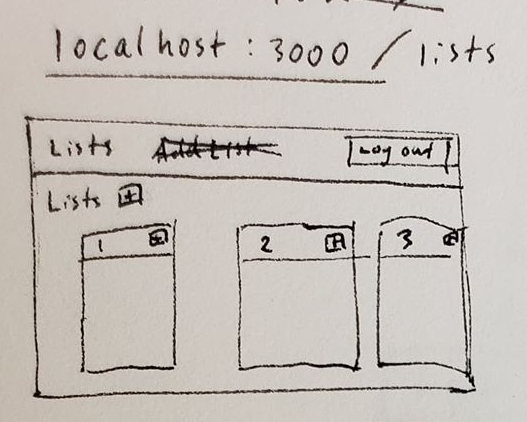 localhost : 3000 / lists
Lists Add List Log out
Lists +
1 + 2 + 3 +